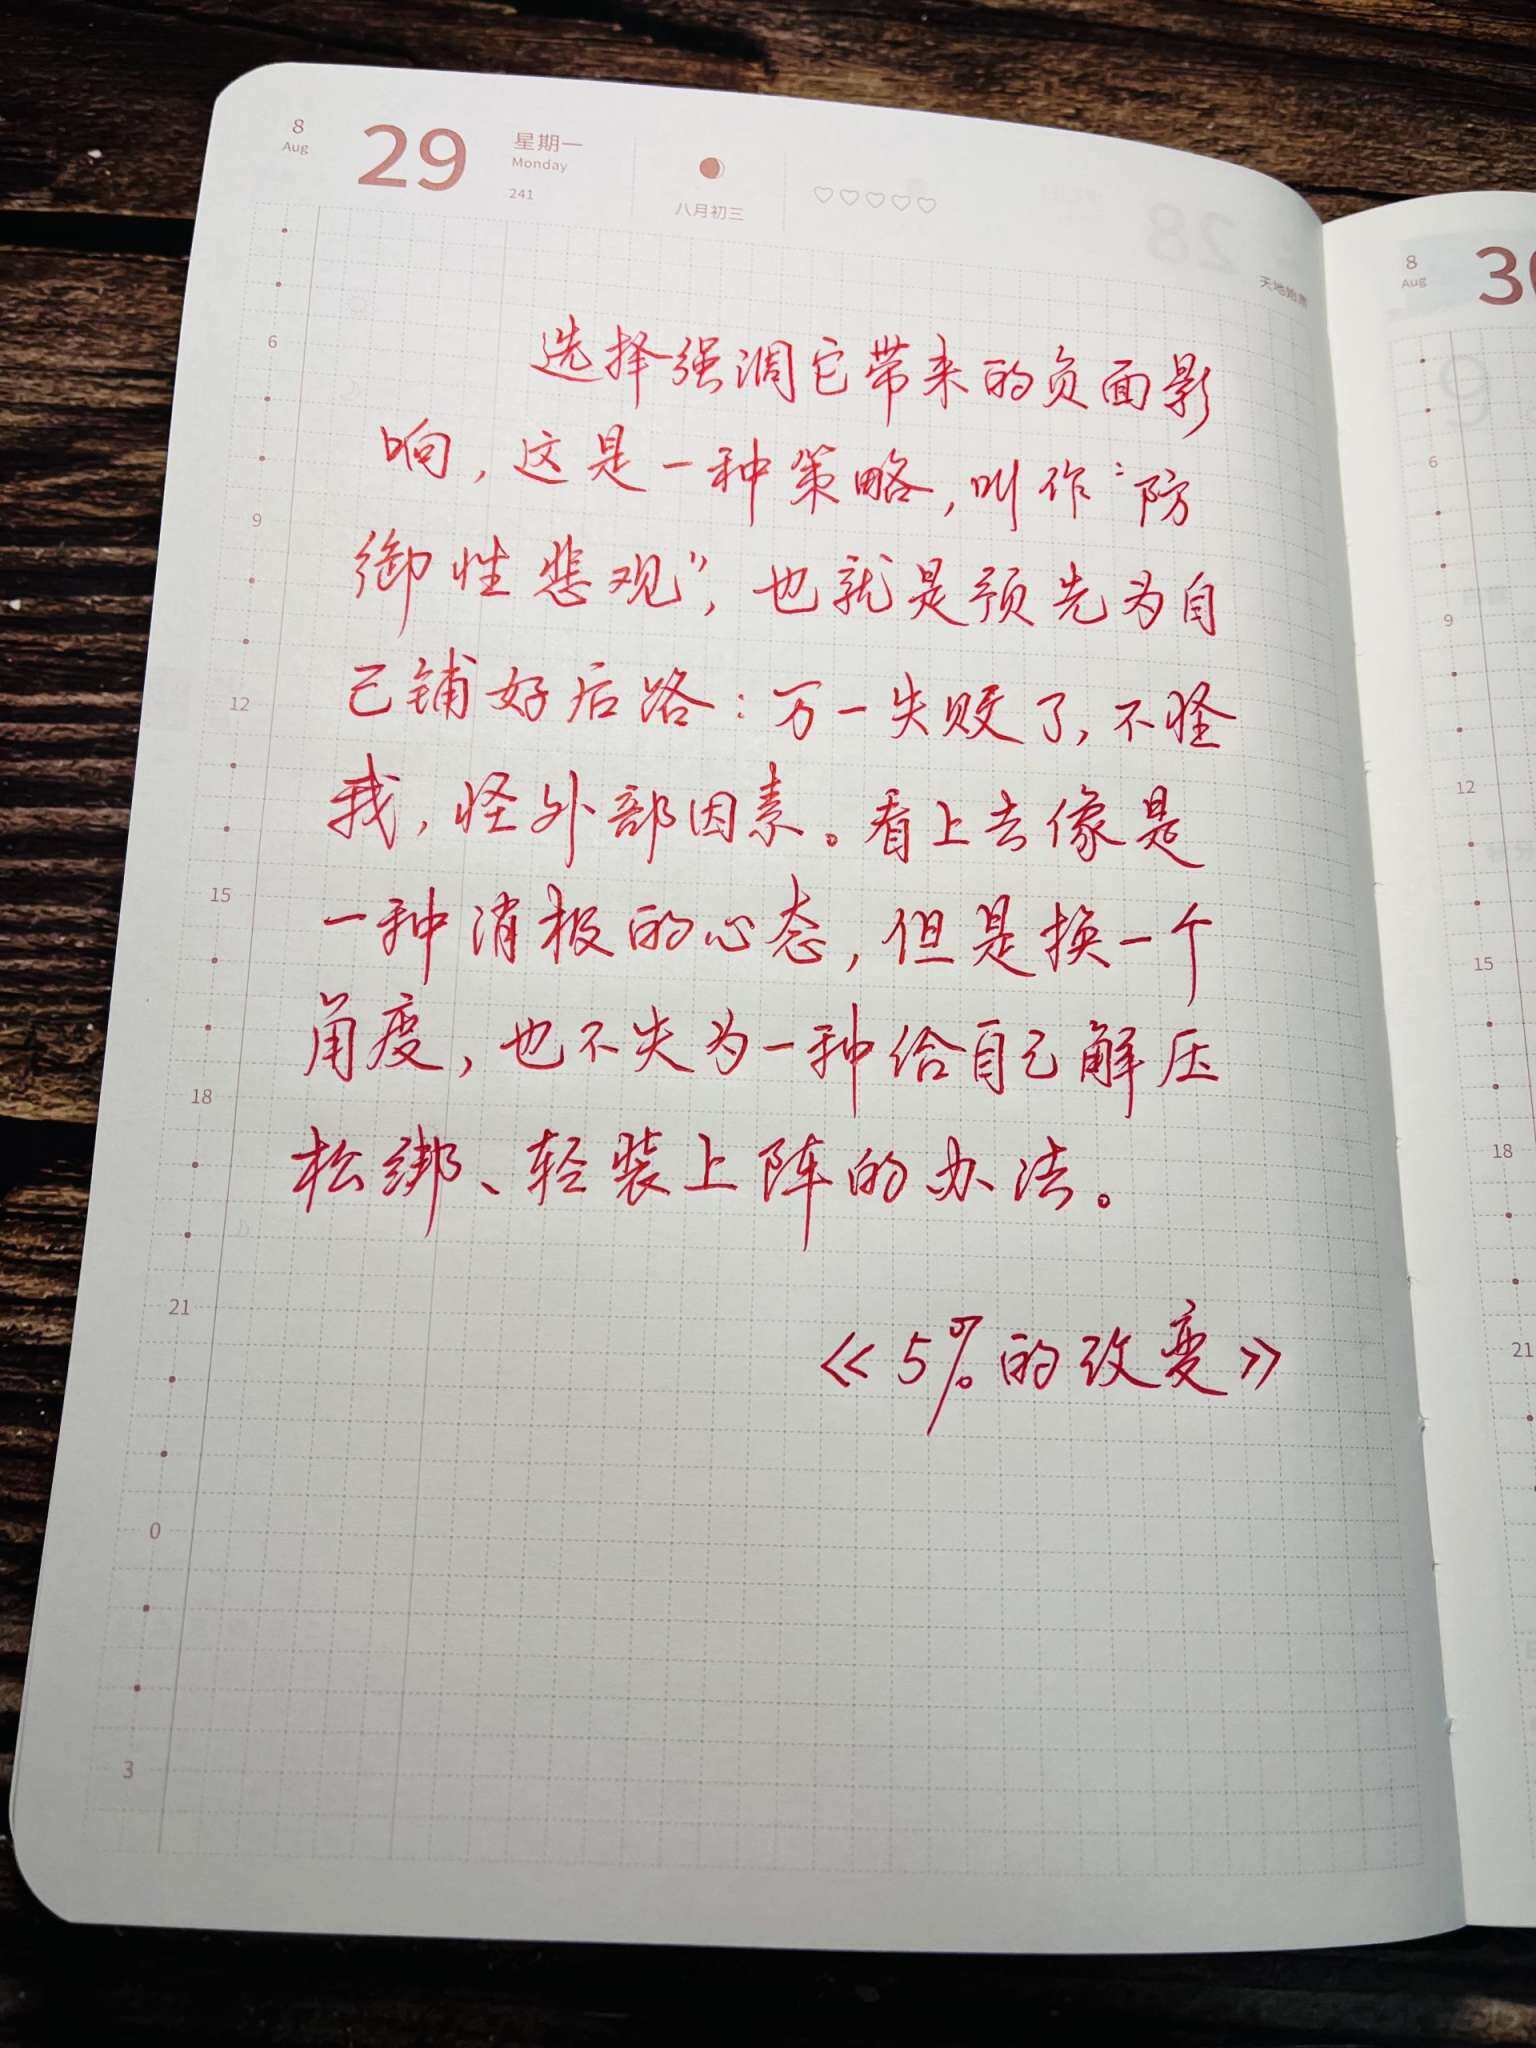 8
Aug
29
星期一
Monday
241
八月初三
天地始肃
选择强调它带来的负面影
响，这是一种策略，叫作“防
御性悲观”，也就是预先为自
己铺好后路：万一失败了，不怪
我，怪外部因素。看上去像是
一种消极的心态，但是换一个
角度，也不失为一种给自己解压
松绑、轻装上阵的办法。
《5%的改变》
6
9
12
15
18
21
0
3
8
Aug
30
6
9
12
15
18
21